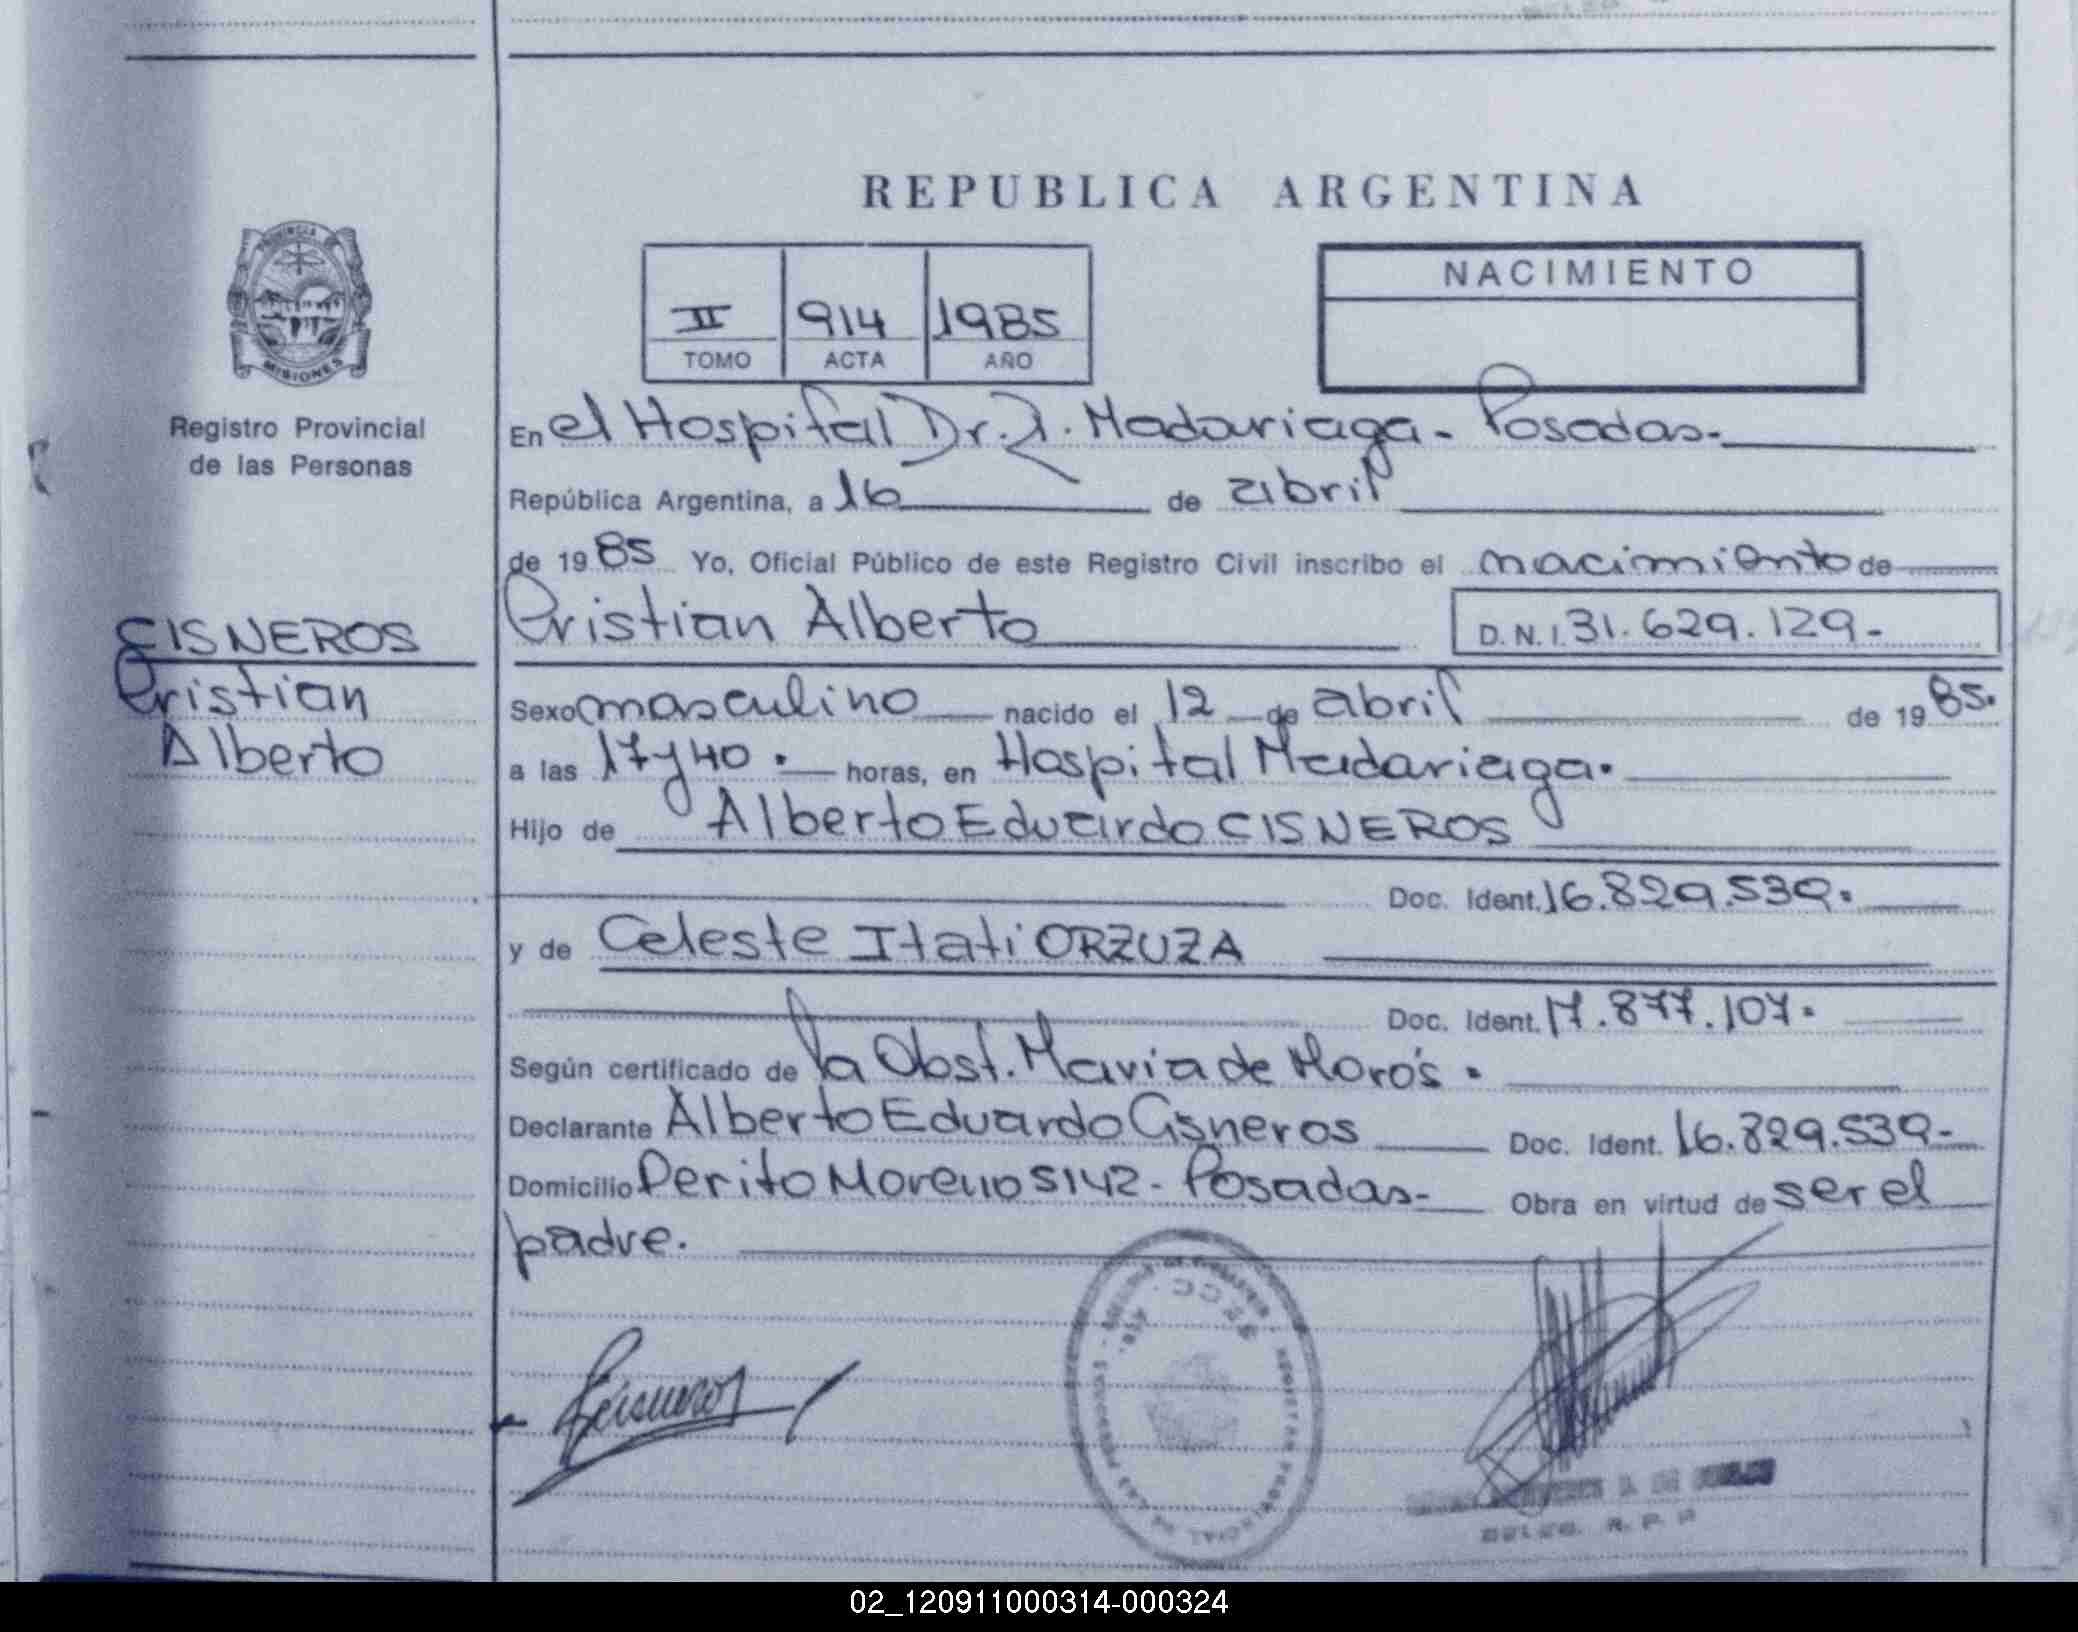 REPUBLICA ARGENTINA
PROVINCIA DE
MISIONES
Registro Provincial
de las Personas
II 914 1985
TOMO ACTA AÑO
NACIMIENTO
En el Hospital Dr. R. Madariaga - Posadas.
República Argentina, a 16 de abril
de 1985 Yo, Oficial Público de este Registro Civil inscribo el nacimiento de
Cristian Alberto D.N.I. 31.629.129.-
CISNEROS
Cristian
Alberto
Sexo masculino nacido el 12 de abril de 1985.
a las 17 y 40. horas, en Hospital Madariaga.
Hijo de Alberto Eduardo CISNEROS
Doc. Ident. 16.829.539.
y de Celeste Itati ORZUZA
Doc. Ident. 17.877.107.
Según certificado de la Obst. Maria de Moros.
Declarante Alberto Eduardo Cisneros Doc. Ident. 16.829.539-
Domicilio Perito Moreno 5142 - Posadas.- Obra en virtud de ser el
padre.
Cisneros
REGISTRO PROVINCIAL DE LAS PERSONAS
R. P. P
02_120911000314-000324